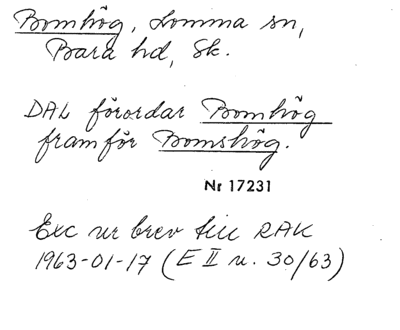 Bomhög, Lomma sn,
Bara hd, Sk.
DAL förordar Bomhög
framför Bomshög.
Nr 17231
Exc ur brev till RAK
1963-01-17 (E II u. 30/63)